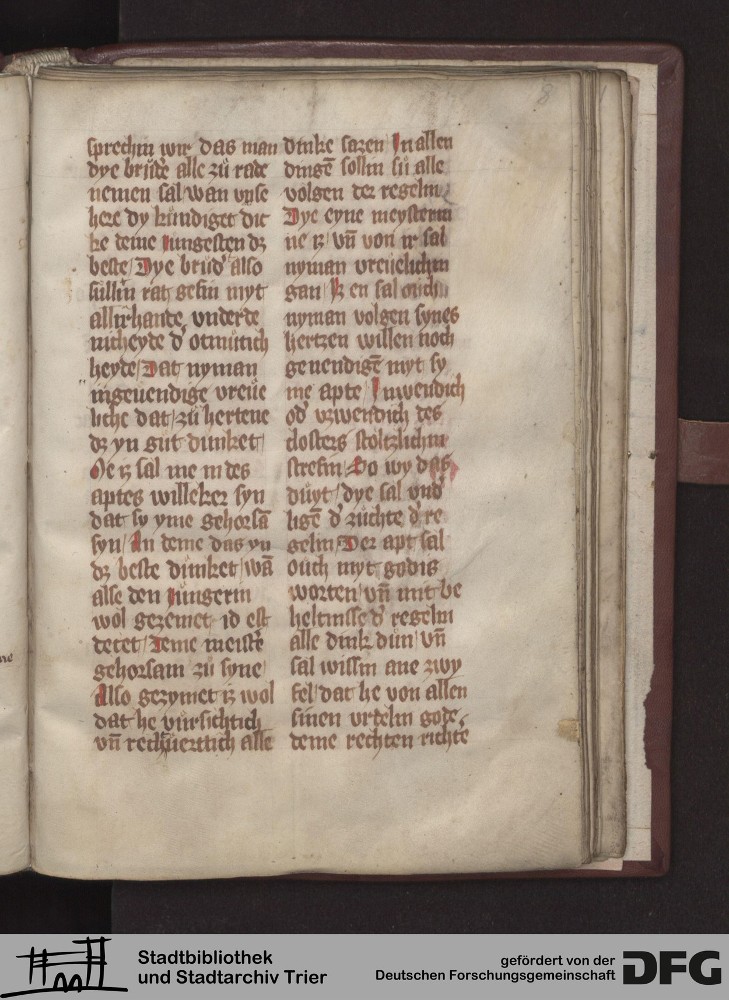 8
sprechin wir das man
dye brud'e alle zů rade
nemen sal/wan vnse
here dy kundiget dic
ke deme iungesten dz
beste/Dye brud' also
sullin rat gebin myt
allirhande vnderde
nicheyde d' otmůtich
heyde/Dat nyman
ingeuendige vreue
liche dat/zů hertene
dz yn gut dunket/
Me iz sal me in des
aptes willeker syn
dat sy yme gehorsā
syn/An deme das yn
dz beste dunket/wā
alse den iungerin
wol gezemet id est
decet/deme meist'e
gehorsam zů syne/
Also gezymet iz wol
dat he vůrsichtich
vn̄ rechuertich alle
dinke sazen/In allen
dingē sollin sü alle
volgen der regelin/
Dye eyne meysterin
ne iz/vn̄ von ir sal
nyman vreuelichin
gan/Iz en sal ouch
nyman volgen synes
hertzen willen noch
geuendigē myt sy
me apte/Inwendich
od' vzwendich des
closters stoltzlichin
strebin/So wy das
důyt/dye sal vnd'
ligē d' zůchte d' re
gelin/Der apt sal
ouch myt godis
worten/vn̄ mit be
heltnisse d' regelin
alle dink dun/vn̄
sal wissin ane zwy
fel/dat he von allen
sinen vrdelin gode
deme rechten richte
Stadtbibliothek
und Stadtarchiv Trier
gefördert von der
Deutschen Forschungsgemeinschaft
DFG